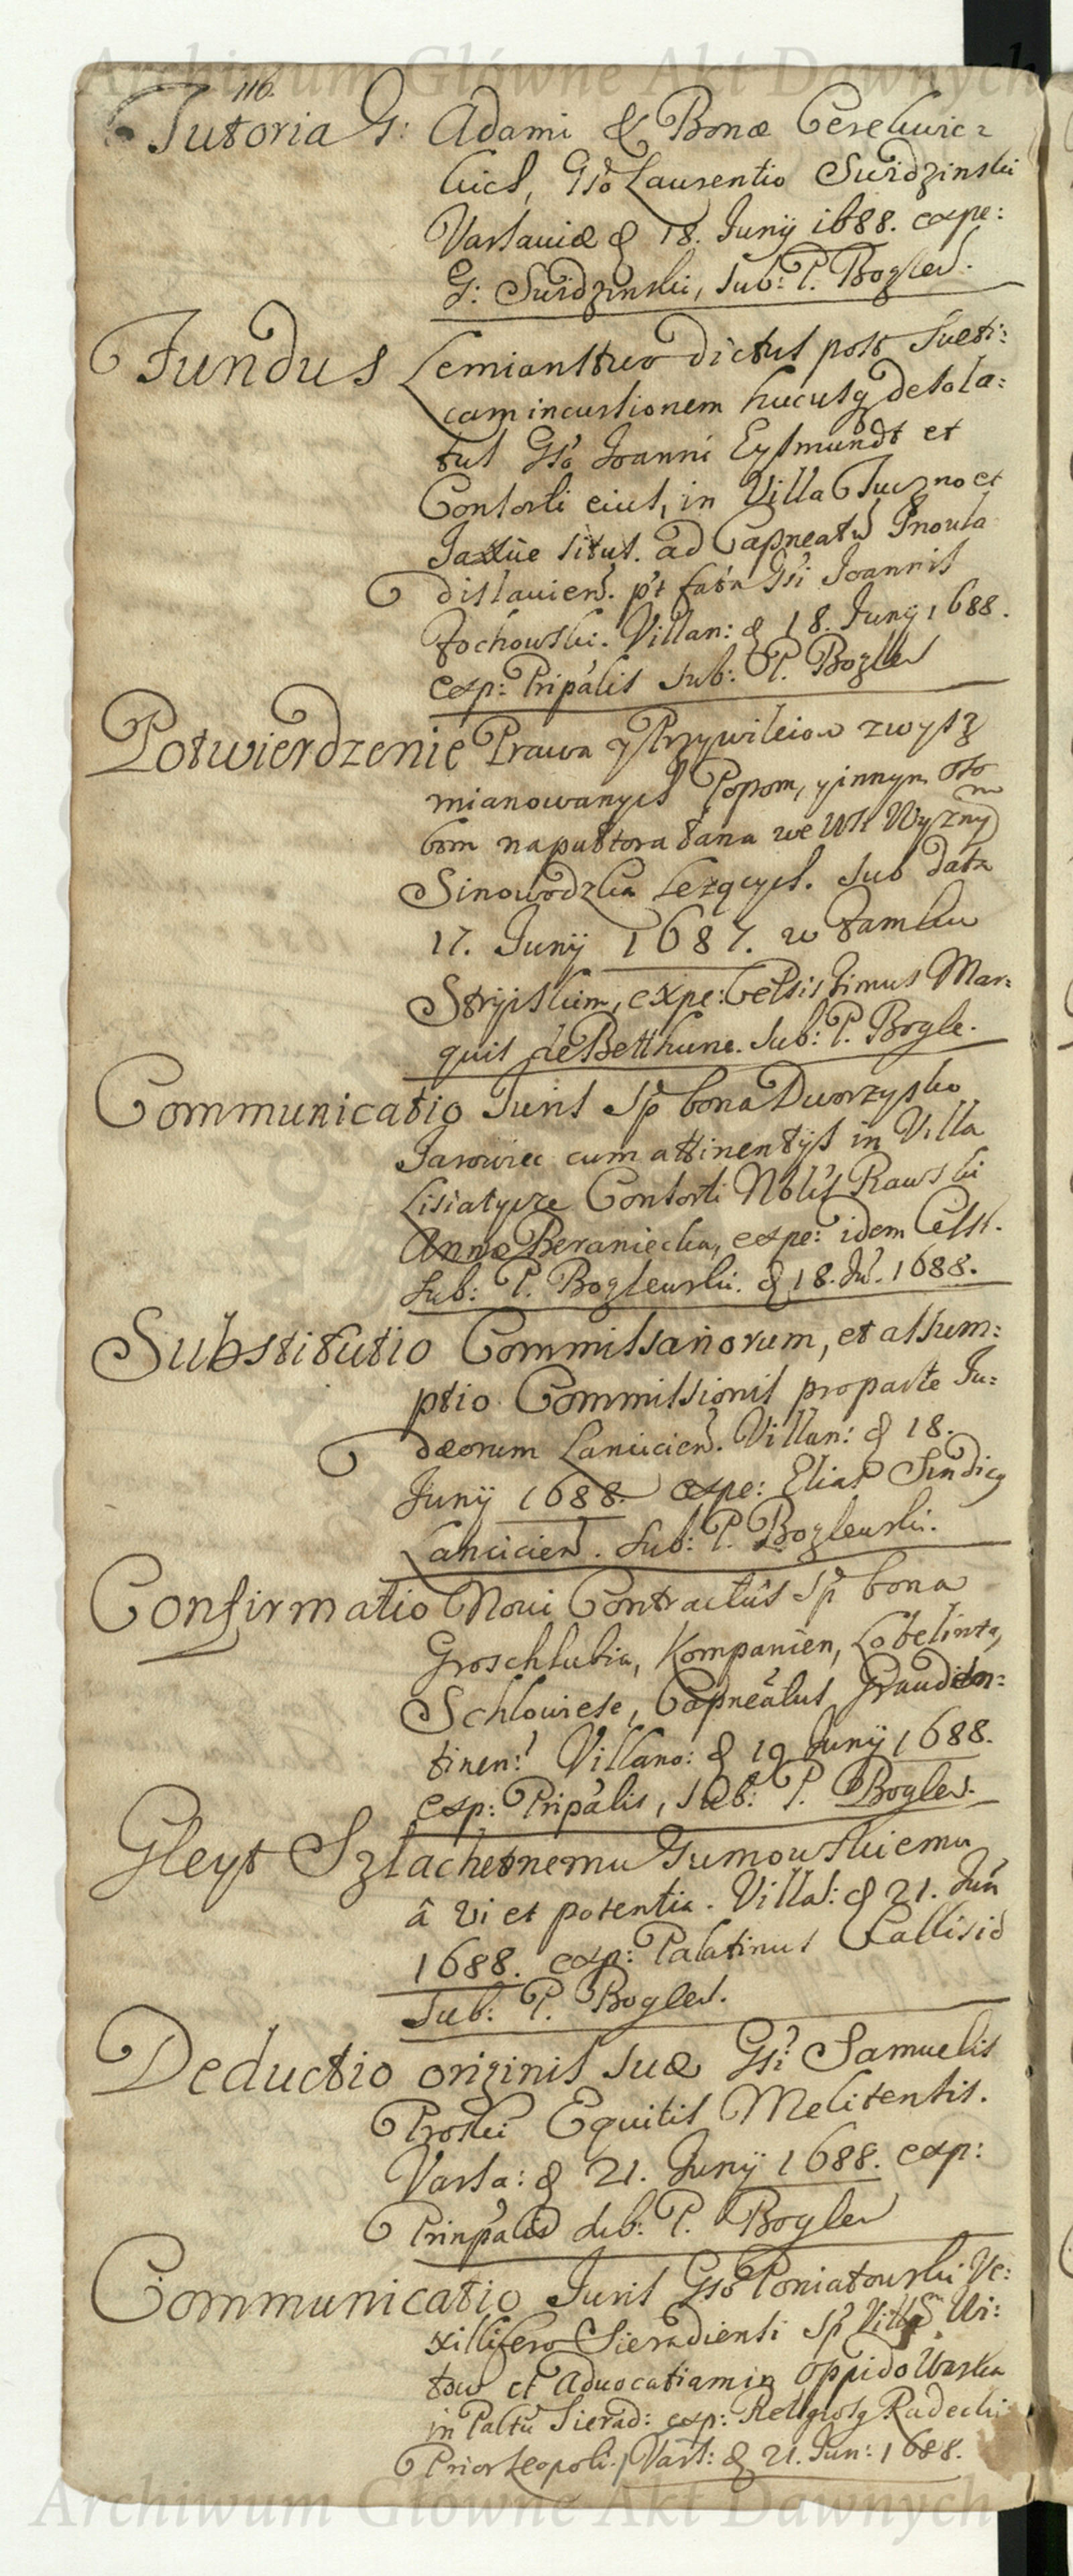 Archiwum Główne Akt Dawnych
116.
Tutoria G: Adami & Bonæ Cerekwic=
kich, Gso Laurentio Swidzinski
Varsaviæ d 18. Junij 1688. expe:
G: Swidzinski, sub: P. Boglew.
Fundus Lemianstwo dictus post Sveti:
cam incursionem hucusq desola:
tus Gso Joanni Eysmundt et
Consorti eius, in Villa Tuczno et
Jaxiie situs. ad Capneatu Inoula
dislauien. pt fata Gsi Joannis
Zochowski. Villan: d 18. Junij 1688.
exp: Pripalis sub: P. Boglew
Potwierdzenie Prawa y Przywileiow zwysz
mianowanych Popom, y innym oso
bom na pułtora łana we Wsi Wyznym
Sinowodzku lezących. sub data
17. Junij 1687. w Zamku
Stryiskim, expe: Celsissimus Mar:
quis de Betthune. sub: P. Bogle.
Communicatio Juris sp bona Dworzysko
Jarowiec cum attinentijs in Villa
Lisiatycze Consorti Nblis Rawski
Anna Beraniecka, expe: idem Celsi.
sub: P. Boglewski. d 18. Ju. 1688.
Substitutio Commissariorum, et assum:
ptio Commissionis pro parte Ju:
dæorum Lancicien. Villan: d 18.
Junij 1688. expe: Elias Sindicq
Lancicien. sub: P. Boglewski.
Confirmatio Novi Contractus sp bona
Groschlubia, Kompanien,
Schlowiese, Capneatus Graudien:
tinen: Villano: d 19 Junij 1688.
exp: Pripalis, sub: P. Boglew.
Gleyt Szlachetnemu Gumowskiemu
â vi et potentia. Villa: d 21. Jun
1688. exp: Palatinus Callisi
sub: P. Boglew.
Deductio originis suæ Gsi Samuelis
Proski Equitis Melitensis.
Varsa: d 21. Junij 1688. exp:
Prinpalis sub: P. Boglew
Communicatio Juris Gso Poniatowski Ve:
xillifero Sieradiensi sp Villam Wi:
tow et Advocatiam in oppido Warka
in Paltu Sierad: exp: Religiosq Radecki
Prior Leopoli. Vars: d 21. Jun: 1688.
Archiwum Główne Akt Dawnych